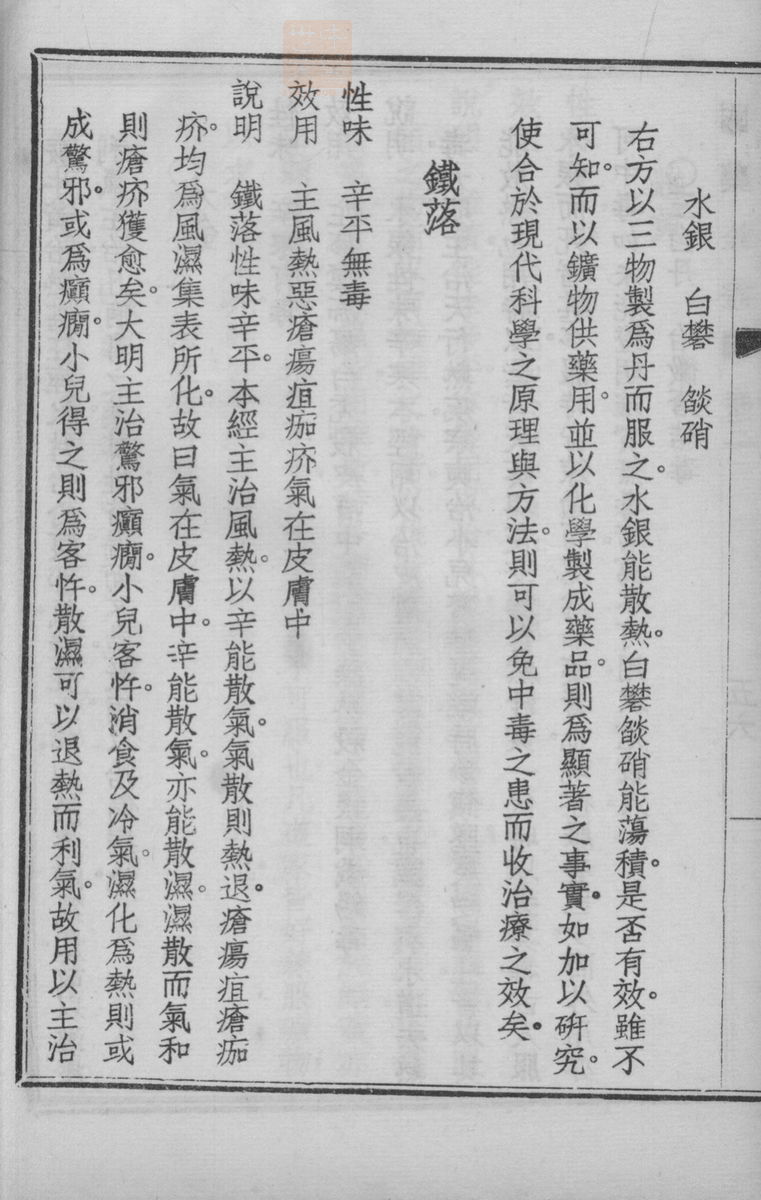 水銀　白礬　燄硝
右方以三物製爲丹而服之。水銀能散熱。白礬燄硝能蕩積。是否有效。雖不
可知。而以鑛物供藥用。並以化學製成藥品。則爲顯著之事實。如加以研究。
使合於現代科學之原理與方法。則可以免中毒之患而收治療之效矣。
鐵落
性味　辛平無毒
效用　主風熱惡瘡瘍疽痂疥氣在皮膚中
說明　鐵落性味辛平。本經主治風熱。以辛能散氣。氣散則熱退。瘡瘍疽瘡痂
疥。均爲風濕集表所化。故曰氣在皮膚中。辛能散氣。亦能散濕。濕散而氣和
則瘡疥獲愈矣。大明主治驚邪癲癇。小兒客忤。消食及冷氣。濕化爲熱則或
成驚邪。或爲癲癇。小兒得之則爲客忤。散濕可以退熱而利氣。故用以主治